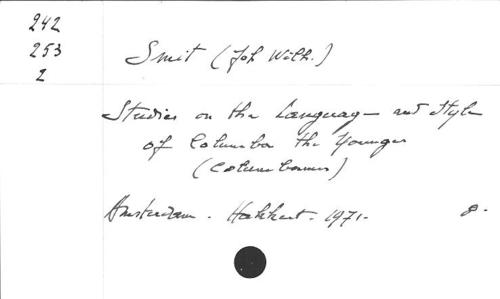 242
253
2
Smit (Joh Wilh.)
Studies on the Language and Style
of Columba the Younger
(Columbanus)
Amsterdam. Hakkert. 1971. 8.